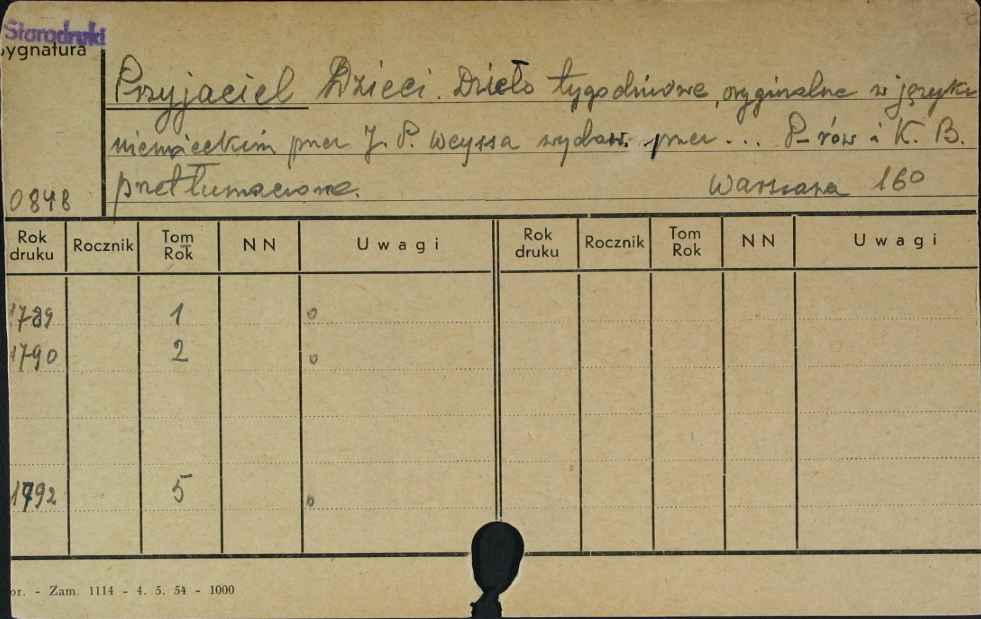 Starodruki
Sygnatura
Przyjaciel Dzieci. Dzieło tygodniowe, oryginalne w języku
niemieckim przez J. P. Weyssa wydaw. przez ... P-rów i K. B.
przetłumaczone. Warszawa 160
0848
Rok druku Rocznik Tom Rok NN Uwagi Rok druku Rocznik Tom Rok NN Uwagi
1789 1 o
1790 2 o
1792 5 o
or. - Zam. 1114 - 4. 5. 54 - 1000